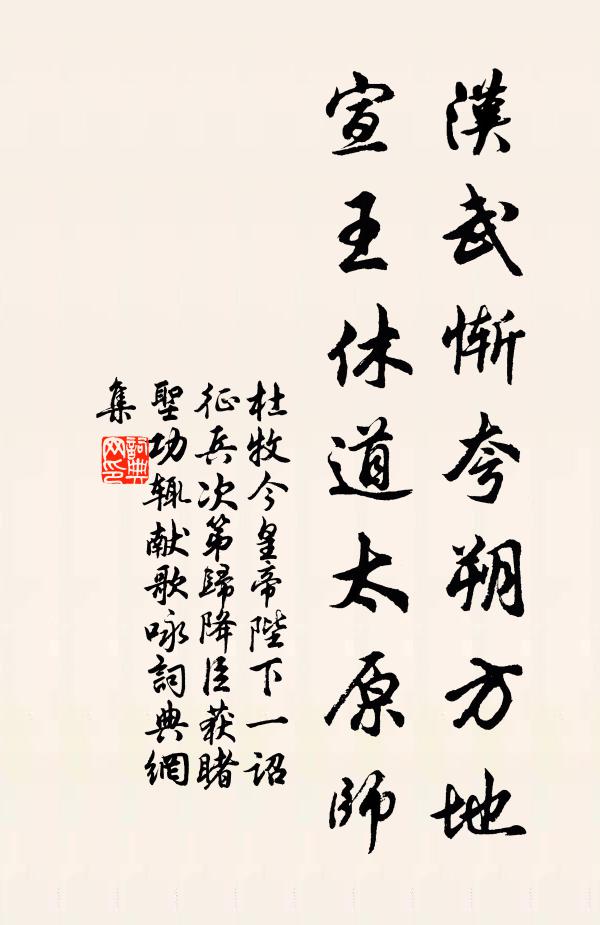 漢武慚夸朔方地
宣王休道太原師
杜牧今皇帝陛下一詔
征兵次第歸降臣获睹
聖功輒献歌咏詞典網
集
詞典
网印